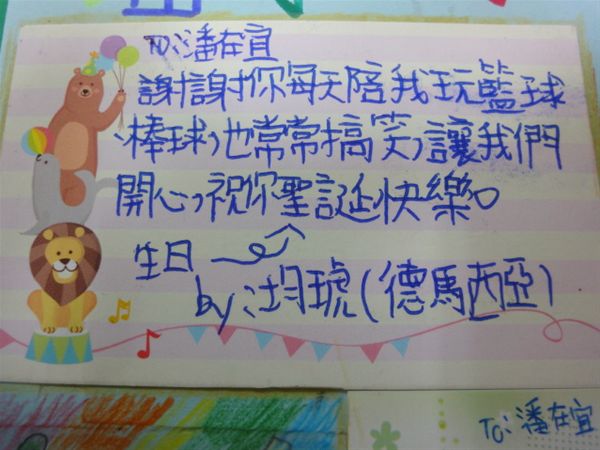 TO:潘在宜
謝謝你每天陪我玩籃球
、棒球,也常常搞笑,讓我們
開心,祝你聖誕快樂。
生日
by:均琥(德馬西亞)
TO:潘在宜